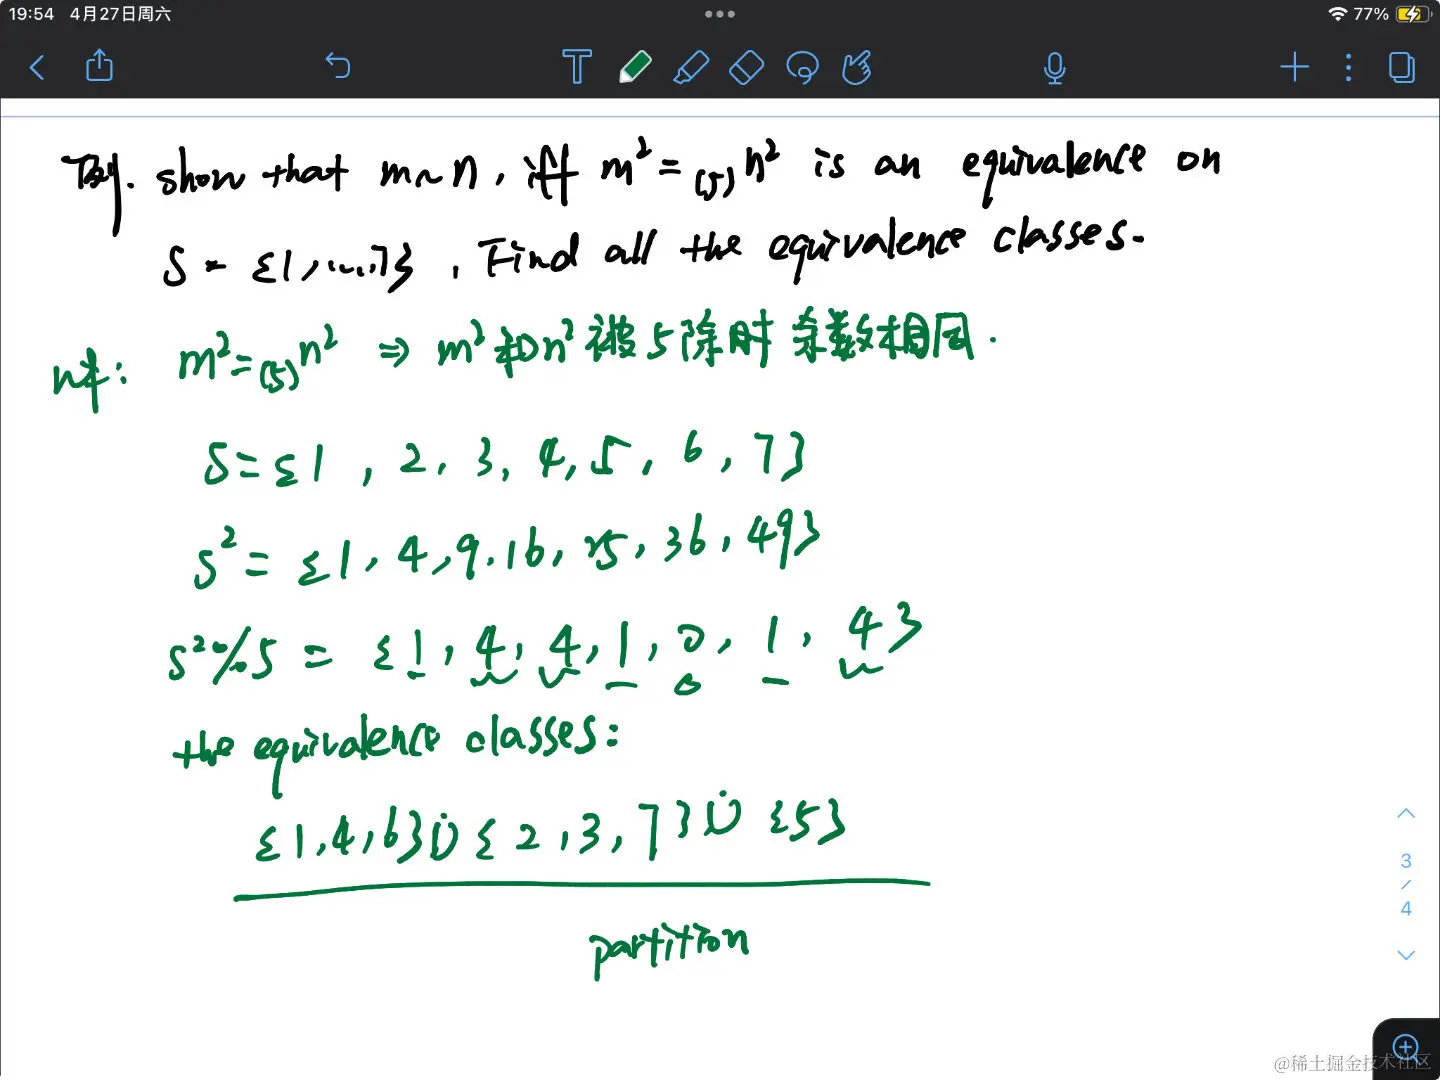 19:54 4月27日周六
77%
show that m~n, iff m² =₍₅₎ n² is an equivalence on
S = {1, ..., 7}, Find all the equivalence classes.
m² =₍₅₎ n² ⇒ m²和n²被5除时余数相同.
S = {1, 2, 3, 4, 5, 6, 7}
S² = {1, 4, 9, 16, 25, 36, 49}
S²%5 = {1, 4, 4, 1, 0, 1, 4}
the equivalence classes:
{1, 4, 6} ∪̇ {2, 3, 7} ∪̇ {5}
partition
3
/
4
@稀土掘金技术社区